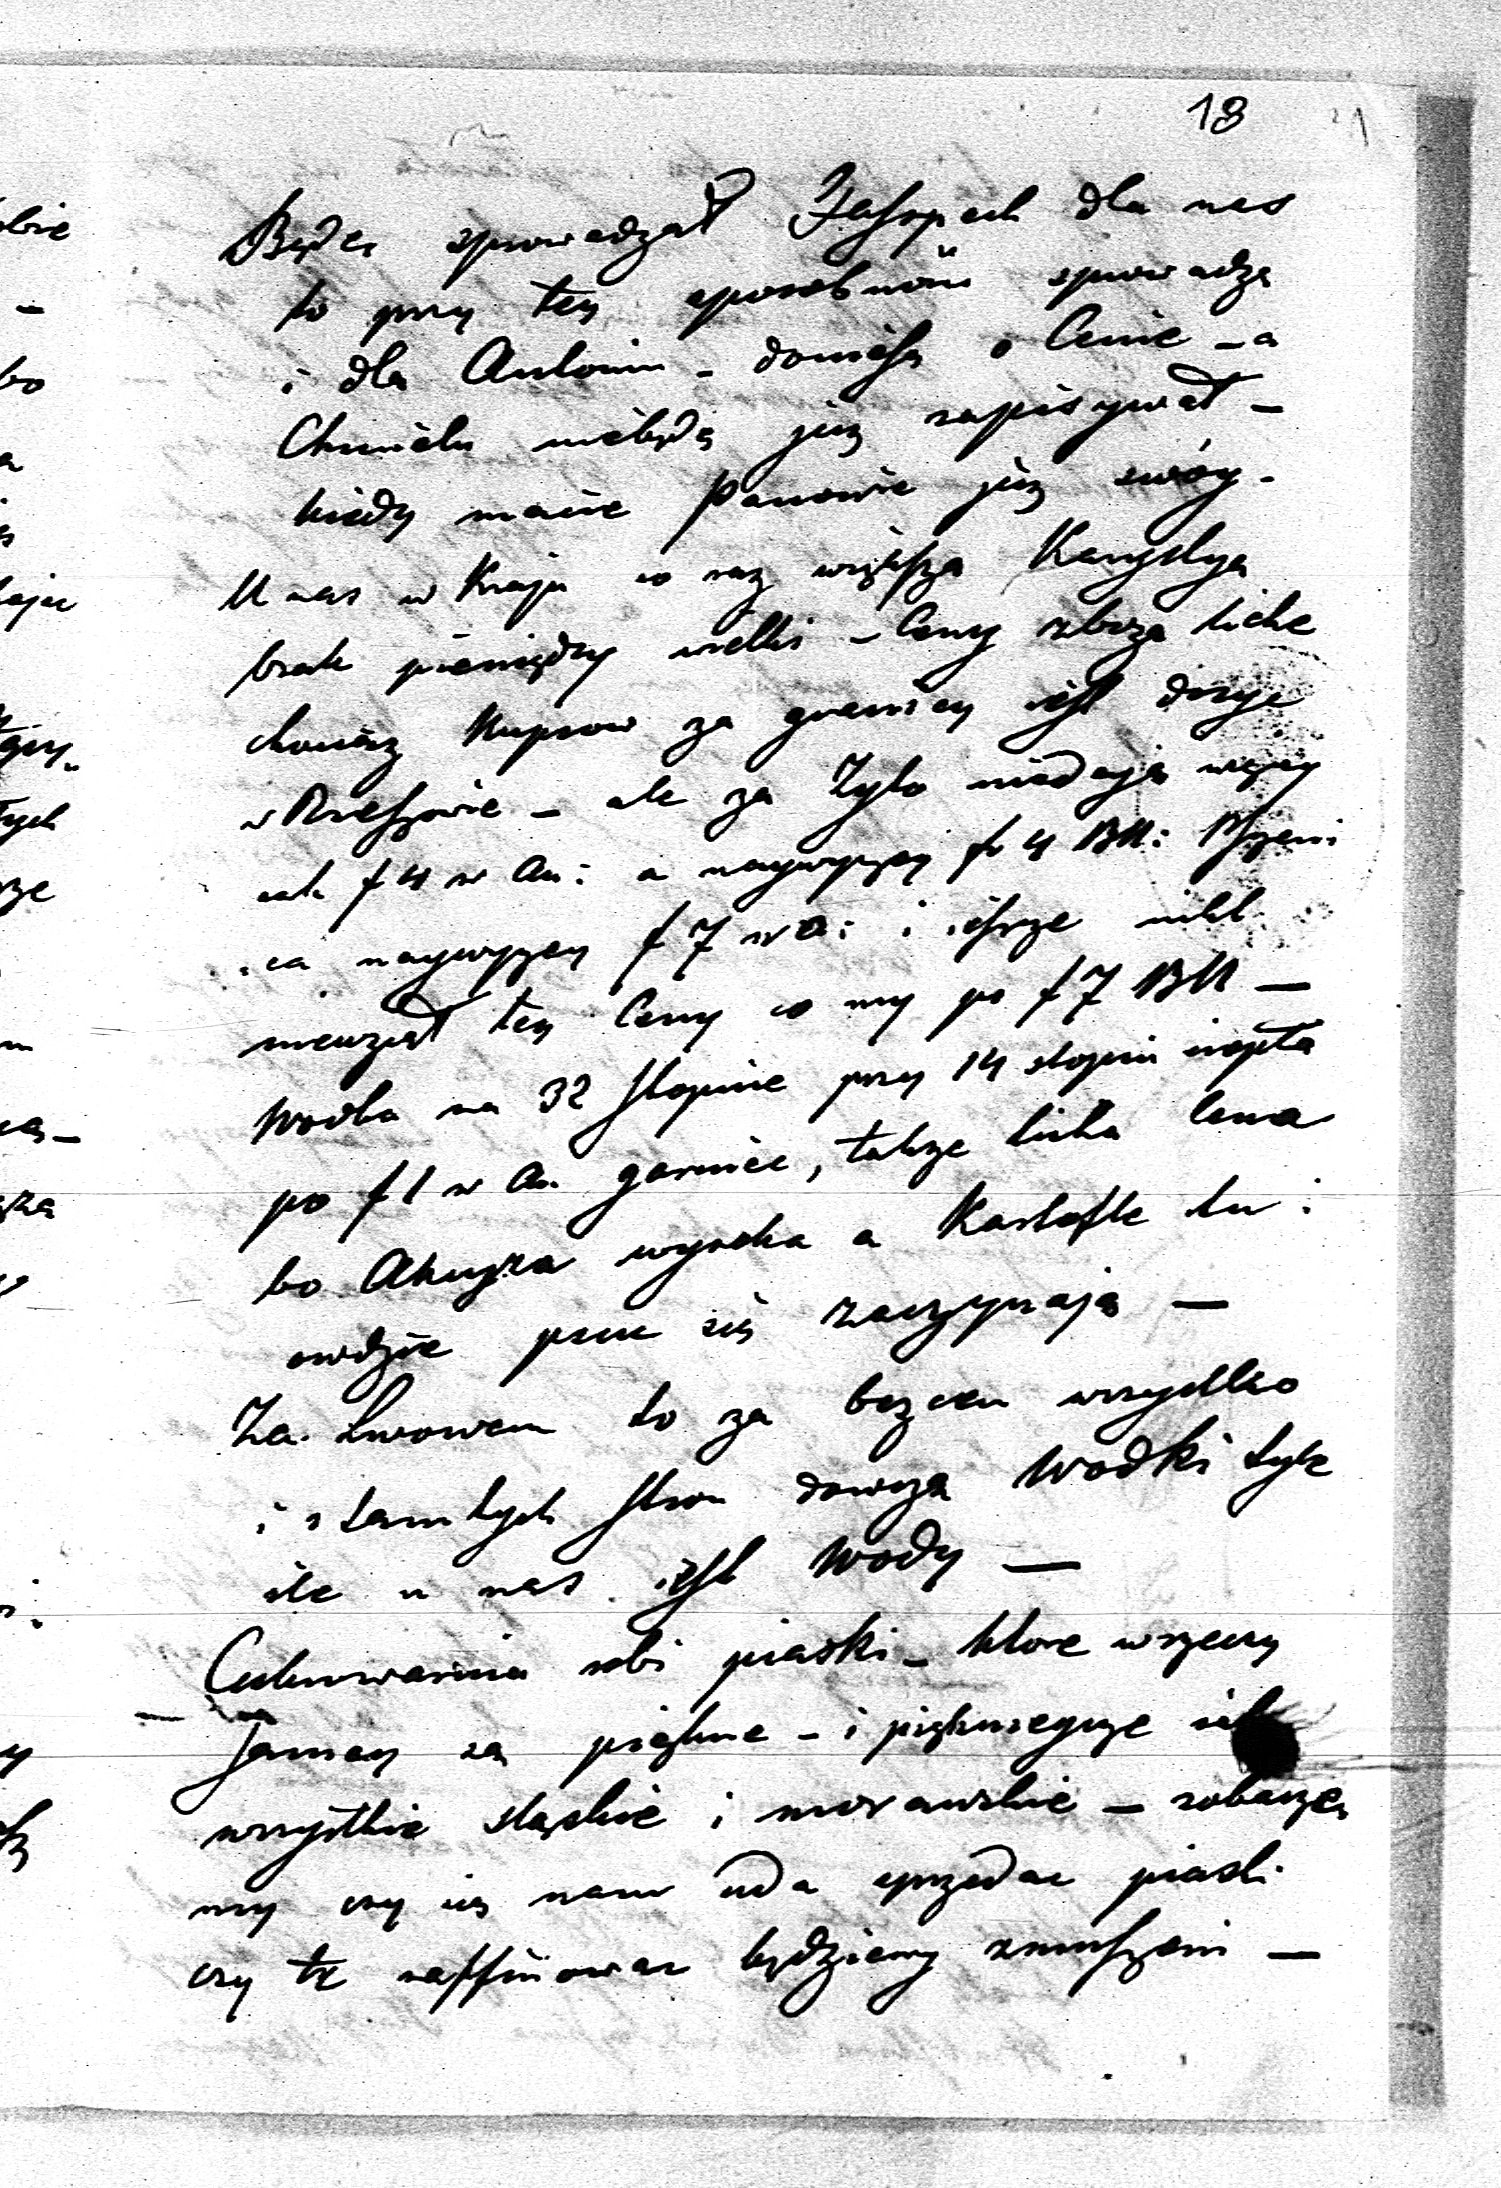 13
Będę sprowadzał dla nas
to przy tey sposobności sprowadzę
i dla Antonim – doniosę o Cenie – a
Chmielu niebędę już zapisywał –
kiedy macie Panowie już swóy.
U nas w Kraju co raz większa Karystya
brak pieniędzy wielki – Ceny zboża liche
chociaż Kupcow za granicy iest dosyć
w Rzeszowie – ale za Żyto niedają więcey
iak f 4 w Au: a naywyżey fo 4 BM: Pszeni
ca naywyżey f 7 w a: i ieszcze nikt
niewziął tey Ceny co my po f 7 BM —
Wodka na 32 stopnie przy 14 stopni ciepła
po f 1 w Au. garniec, także licha Cena
bo Akcyza wysoka a Kartofle tu:
owdzie psuc się zaczynają —
Za Lwowem to za bezcen wszystko
i z tamtych stron dowożą Wodki tyle
ile u nas iest Wody —
Cukrowarnia robi piaski – ktore w rzeczy
samey są piękne – i pięknieysze
wszystkie sląskie i morawskie – zobaczę
my czy się nam uda sprzedac piaski
czy te raffinowac będziemy zmuszeni —